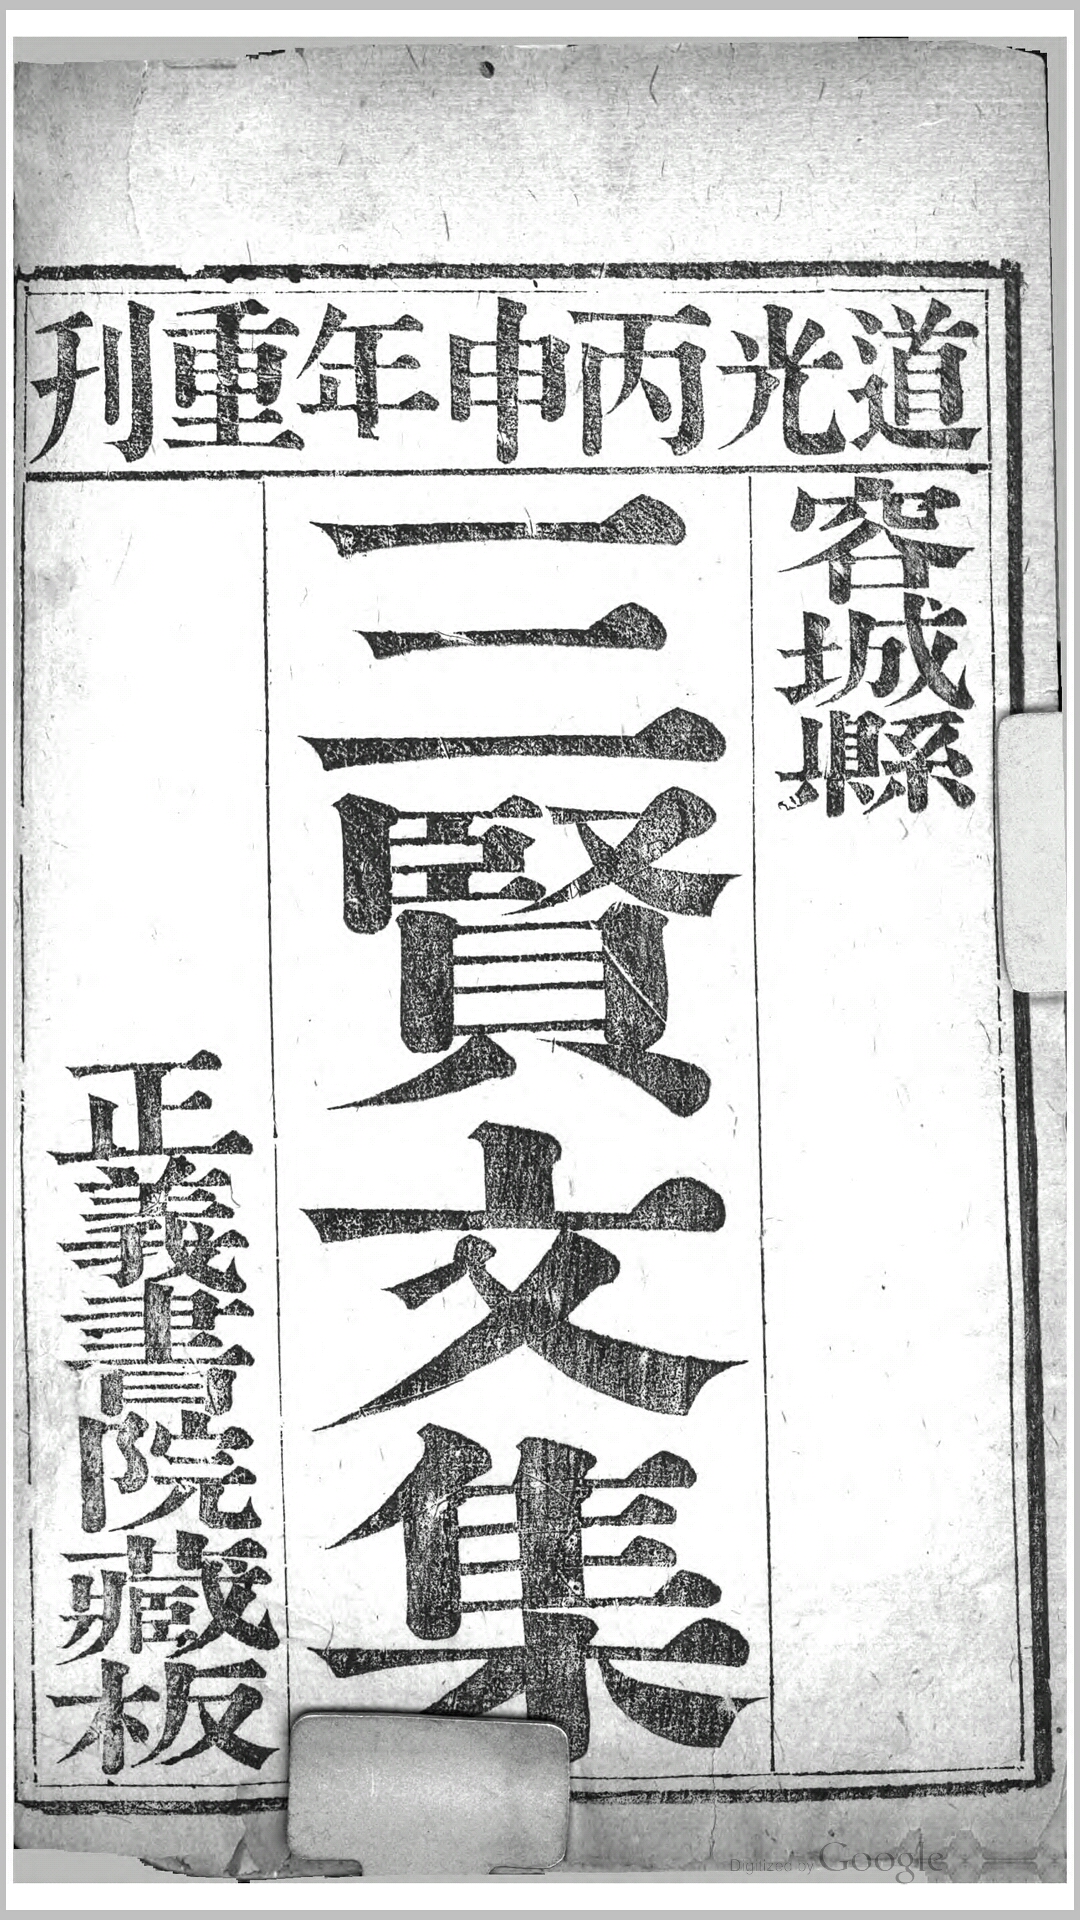 道光丙申年重刊
容城縣
三賢文集
正義書院藏板
Digitized by Google